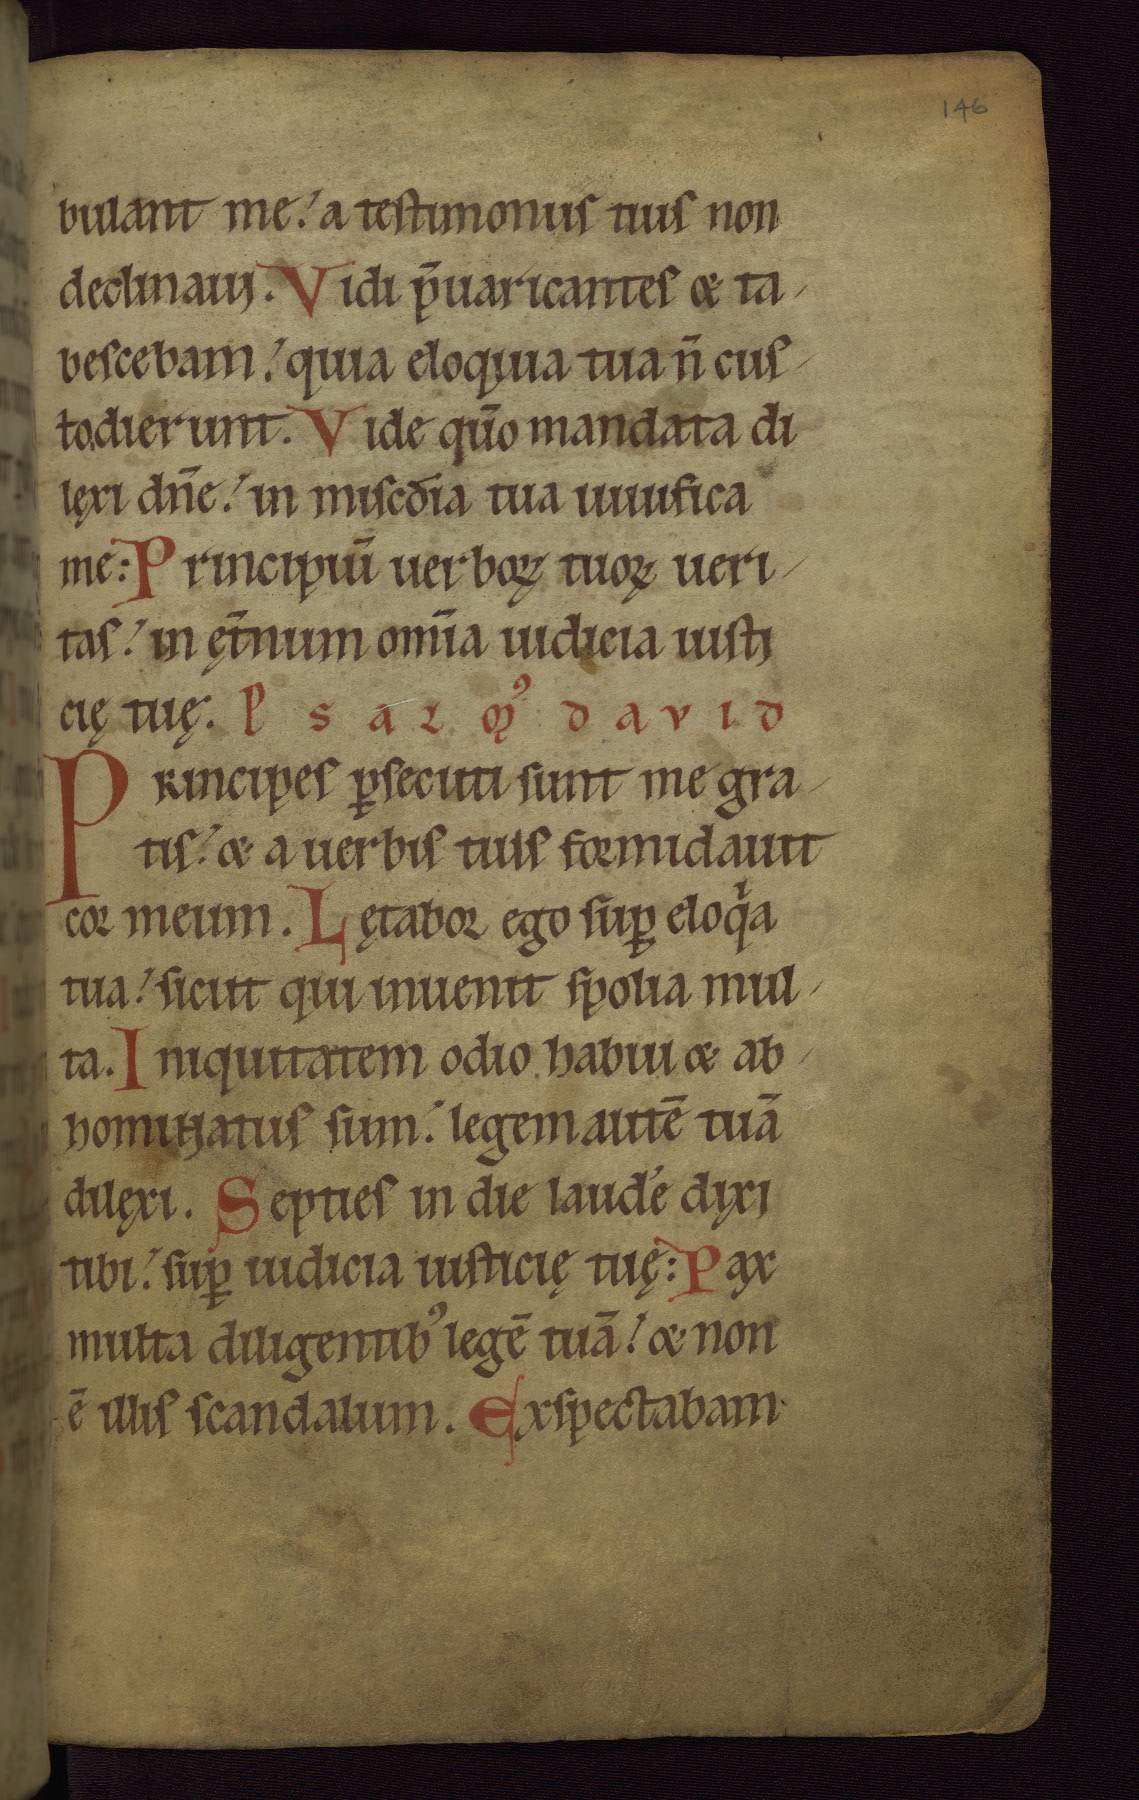 146
bulant me: a testimoniis tuis non
declinaui. Vidi p̄uaricantes & ta-
bescebam: quia eloquia tua n̄ cus-
todierunt. Vide quō mandata di
lexi dn̄e: in misc̄dia tua uiuifica
me: Principiū uerboꝝ tuoꝝ ueri-
tas: in ęt̄num om̄ia iudicia iusti
cię tuę. PSALM᷒ DAVID
Principes ꝑsecuti sunt me gra-
tis: & a uerbis tuis formidauit
cor meum. Lętabor ego suꝑ eloqⁱa
tua: sicut qui inuenit spolia mul-
ta. Iniquitatem odio habui & ab-
hominatus sum: legem autē tuā
dilęxi. Septies in die laudē dixi
tibi: suꝑ iudicia iusticię tuę: Pax
multa diligentib᷒ legē tuā: & non
ē illis scandalum. Exspectabam